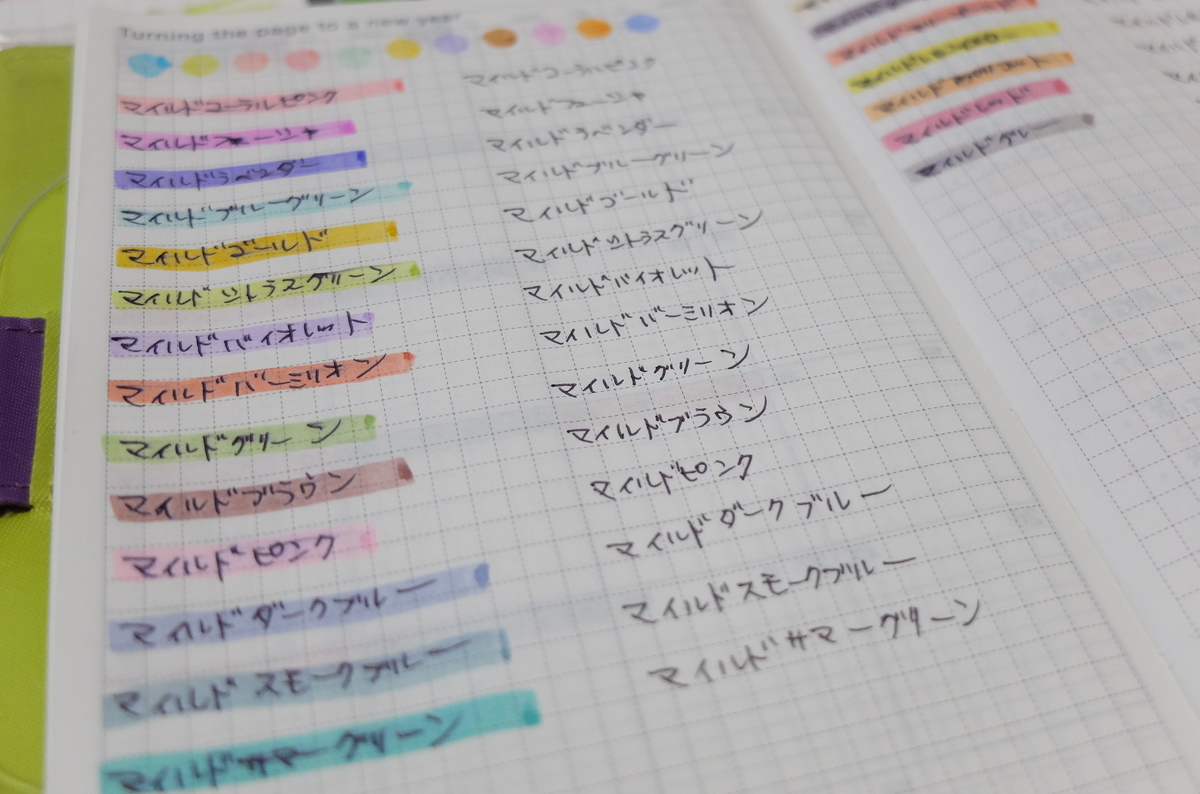 Turning the page to a new year
マイルドコーラルピンク マイルドコーラルピンク
マイルドフューシャ マイルドフューシャ
マイルドラベンダー マイルドラベンダー
マイルドブルーグリーン マイルドブルーグリーン
マイルドゴールド マイルドゴールド
マイルドシトラスグリーン マイルドシトラスグリーン
マイルドバイオレット マイルドバイオレット
マイルドバーミリオン マイルドバーミリオン
マイルドグリーン マイルドグリーン
マイルドブラウン マイルドブラウン
マイルドピンク マイルドピンク
マイルドダークブルー マイルドダークブルー
マイルドスモークブルー マイルドスモークブルー
マイルドサマーグリーン マイルドサマーグリーン
マイルドレッド
マイルドグレー